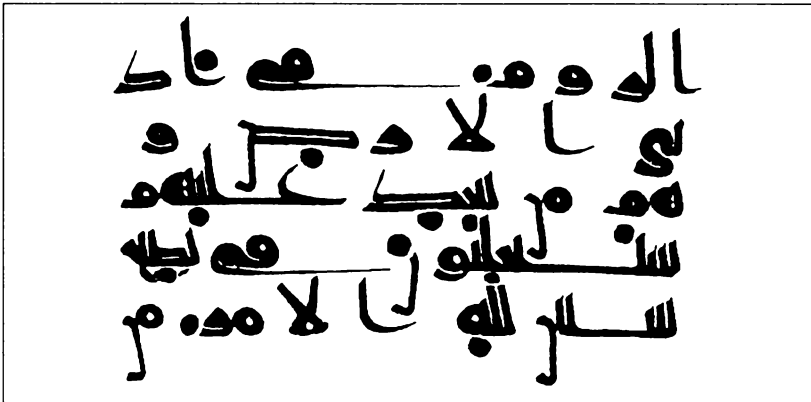 الروم فى اد
نى الارض و
هم من بعد غلبهم
سيغلبون فى بضع
سنين لله الامر من